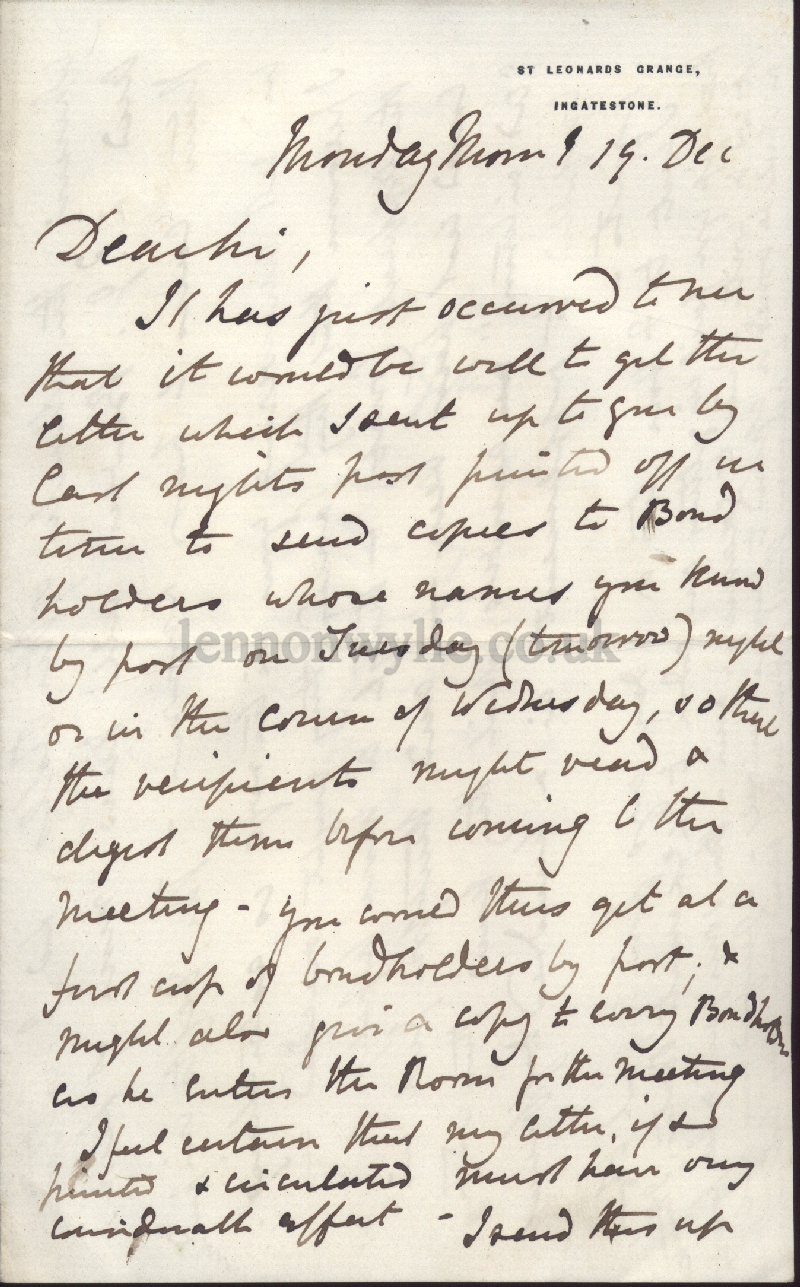 ST LEONARDS GRANGE,
INGATESTONE.
Monday Morng 19. Dec
Dear Sir,
It has just occurred to me
that it would be well to get the
letter which I sent up to you by
last nights post printed off in
time to send copies to Bond
holders whose names you know
by post on Tuesday (tomorrow) night
lennonwylie.co.uk
or in the course of Wednesday, so that
the recipients might read &
digest them before coming to the
meeting - you would thus get at a
first crop of bondholders by post; &
might also give a copy to every Bondholder
as he enters the Room for the meeting
I feel certain that my letter, if so
printed & circulated must have very
considerable effect - I send this up